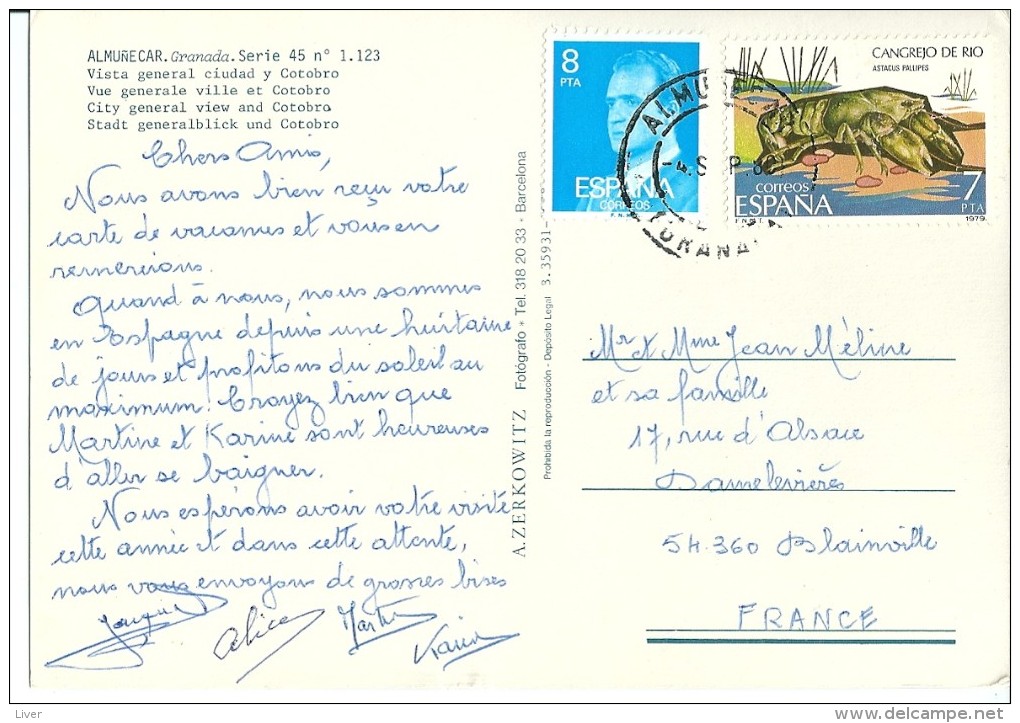 ALMUÑECAR.Granada.Serie 45 nº 1.123
Vista general ciudad y Cotobro
Vue generale ville et Cotobro
City general view and Cotobro
Stadt generalblick und Cotobro
Chers Amis,
Nous avons bien reçu votre
carte de vacances et vous en
remercions.
Quand à nous, nous sommes
en Espagne depuis une huitaine
de jours et profitons du soleil au
maximum! Croyez bien que
Martine et Karine sont heureuses
d'aller se baigner.
Nous espérons avoir votre visite
cette année et dans cette attente,
nous vous envoyons de grosses bises
Alice
Martine
Karine
A. ZERKOWITZ Fotógrafo * Tel. 318 20 33 * Barcelona
Prohibida la reproducción - Depósito Legal 3. 35931-
8
PTA
ESPAÑA
CORREOS
CANGREJO DE RIO
ASTACUS PALLIPES
correos
ESPAÑA
7
PTA
F.N.M.T.
1979
Mr & Mme Jean Méline
et sa famille
17, rue d'Alsace
Damelevières
54.360 Blainville
FRANCE
Liver
http://www.delcampe.net